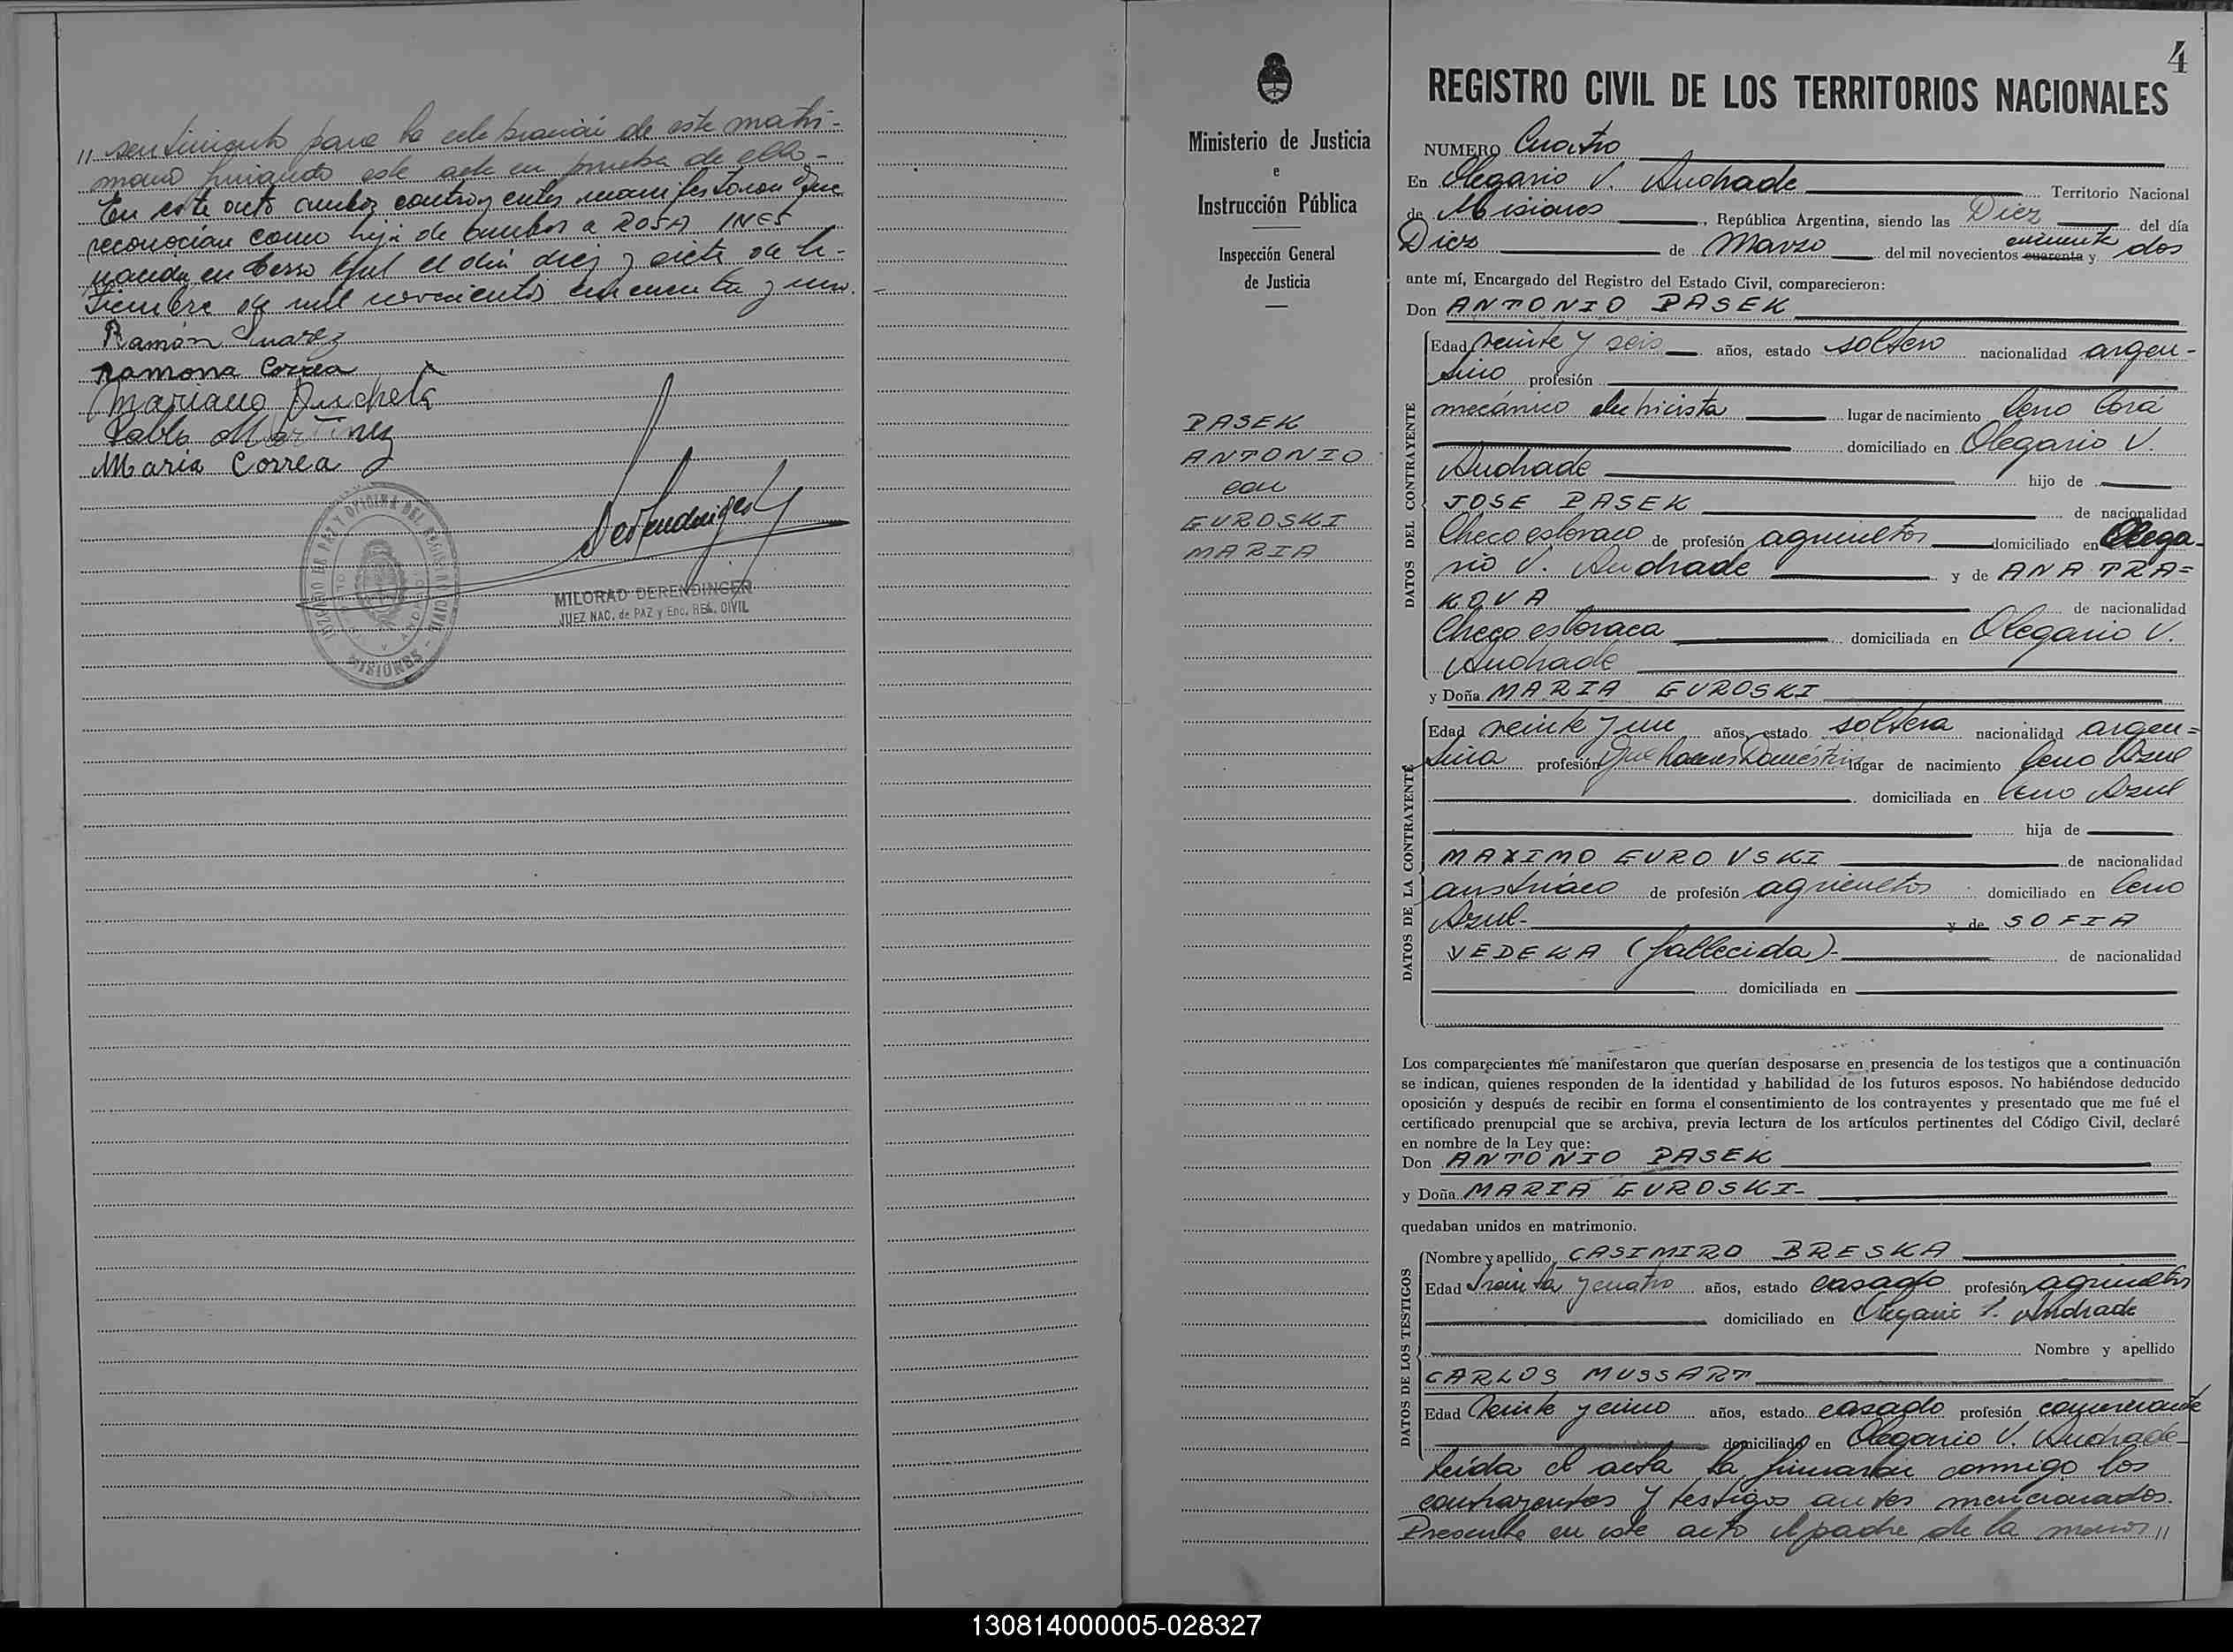 " sentimiento para la celebración de este matri-
monio firmando este acta en prueba de ello-
En este acto ambos contrayentes manifestaron que
reconocian como hija de ambos a ROSA INES
nacida en Cerro Azul el día diez y siete de Se-
tiembre de mil novecientos cincuenta y uno.
Ramón Suarez
Ramona Correa
Mariano
Pablo Martinez
Maria Correa
JUZGADO DE PAZ Y OFICINA DEL REGISTRO CIVIL - MISIONES
MILORAD DERENDINGER
JUEZ NAC. de PAZ y Enc. REG. CIVIL
Ministerio de Justicia
e
Instrucción Pública
Inspección General
de Justicia
PASEK
ANTONIO
con
GUROSKI
MARIA
4
REGISTRO CIVIL DE LOS TERRITORIOS NACIONALES
NUMERO Cuatro
En Olegario V. Andrade Territorio Nacional
de Misiones, República Argentina, siendo las Diez del día
Diez de Marzo del mil novecientos cuarenta y cincuenta dos
ante mí, Encargado del Registro del Estado Civil, comparecieron:
Don ANTONIO PASEK
DATOS DEL CONTRAYENTE
Edad veinte y seis años, estado soltero nacionalidad argen-
tino profesión
mecánico electricista lugar de nacimiento Cerro Corá
domiciliado en Olegario V.
Andrade hijo de
JOSE PASEK de nacionalidad
Checoeslovaco de profesión agricultor domiciliado en Olega-
rio V. Andrade y de ANA TRA=
KOVA de nacionalidad
Checoeslovaca domiciliada en Olegario V.
Andrade
y Doña MARIA GUROSKI
DATOS DE LA CONTRAYENTE
Edad veinte y un años, estado soltera nacionalidad argen=
tina profesión Que haceres Domésticos lugar de nacimiento Cerro Azul
domiciliada en Cerro Azul
hija de
MAXIMO GUROVSKI de nacionalidad
austriaco de profesión agricultor domiciliado en Cerro
Azul- y de SOFIA
VEDEKA (fallecida)- de nacionalidad
domiciliada en
Los comparecientes me manifestaron que querían desposarse en presencia de los testigos que a continuación
se indican, quienes responden de la identidad y habilidad de los futuros esposos. No habiéndose deducido
oposición y después de recibir en forma el consentimiento de los contrayentes y presentado que me fué el
certificado prenupcial que se archiva, previa lectura de los artículos pertinentes del Código Civil, declaré
en nombre de la Ley que:
Don ANTONIO PASEK
y Doña MARIA GUROSKI-
quedaban unidos en matrimonio.
DATOS DE LOS TESTIGOS
Nombre y apellido CASIMIRO BRESKA
Edad Treinta y cuatro años, estado casado profesión agricultor
domiciliado en Olegario V. Andrade
Nombre y apellido
CARLOS MUSSART
Edad Veinte y cinco años, estado casado profesión comerciante
domiciliado en Olegario V. Andrade-
Leída el acta la firmaron conmigo los
contrayentes y testigos antes mencionados.
Presente en este acto el padre de la menor "
130814000005-028327